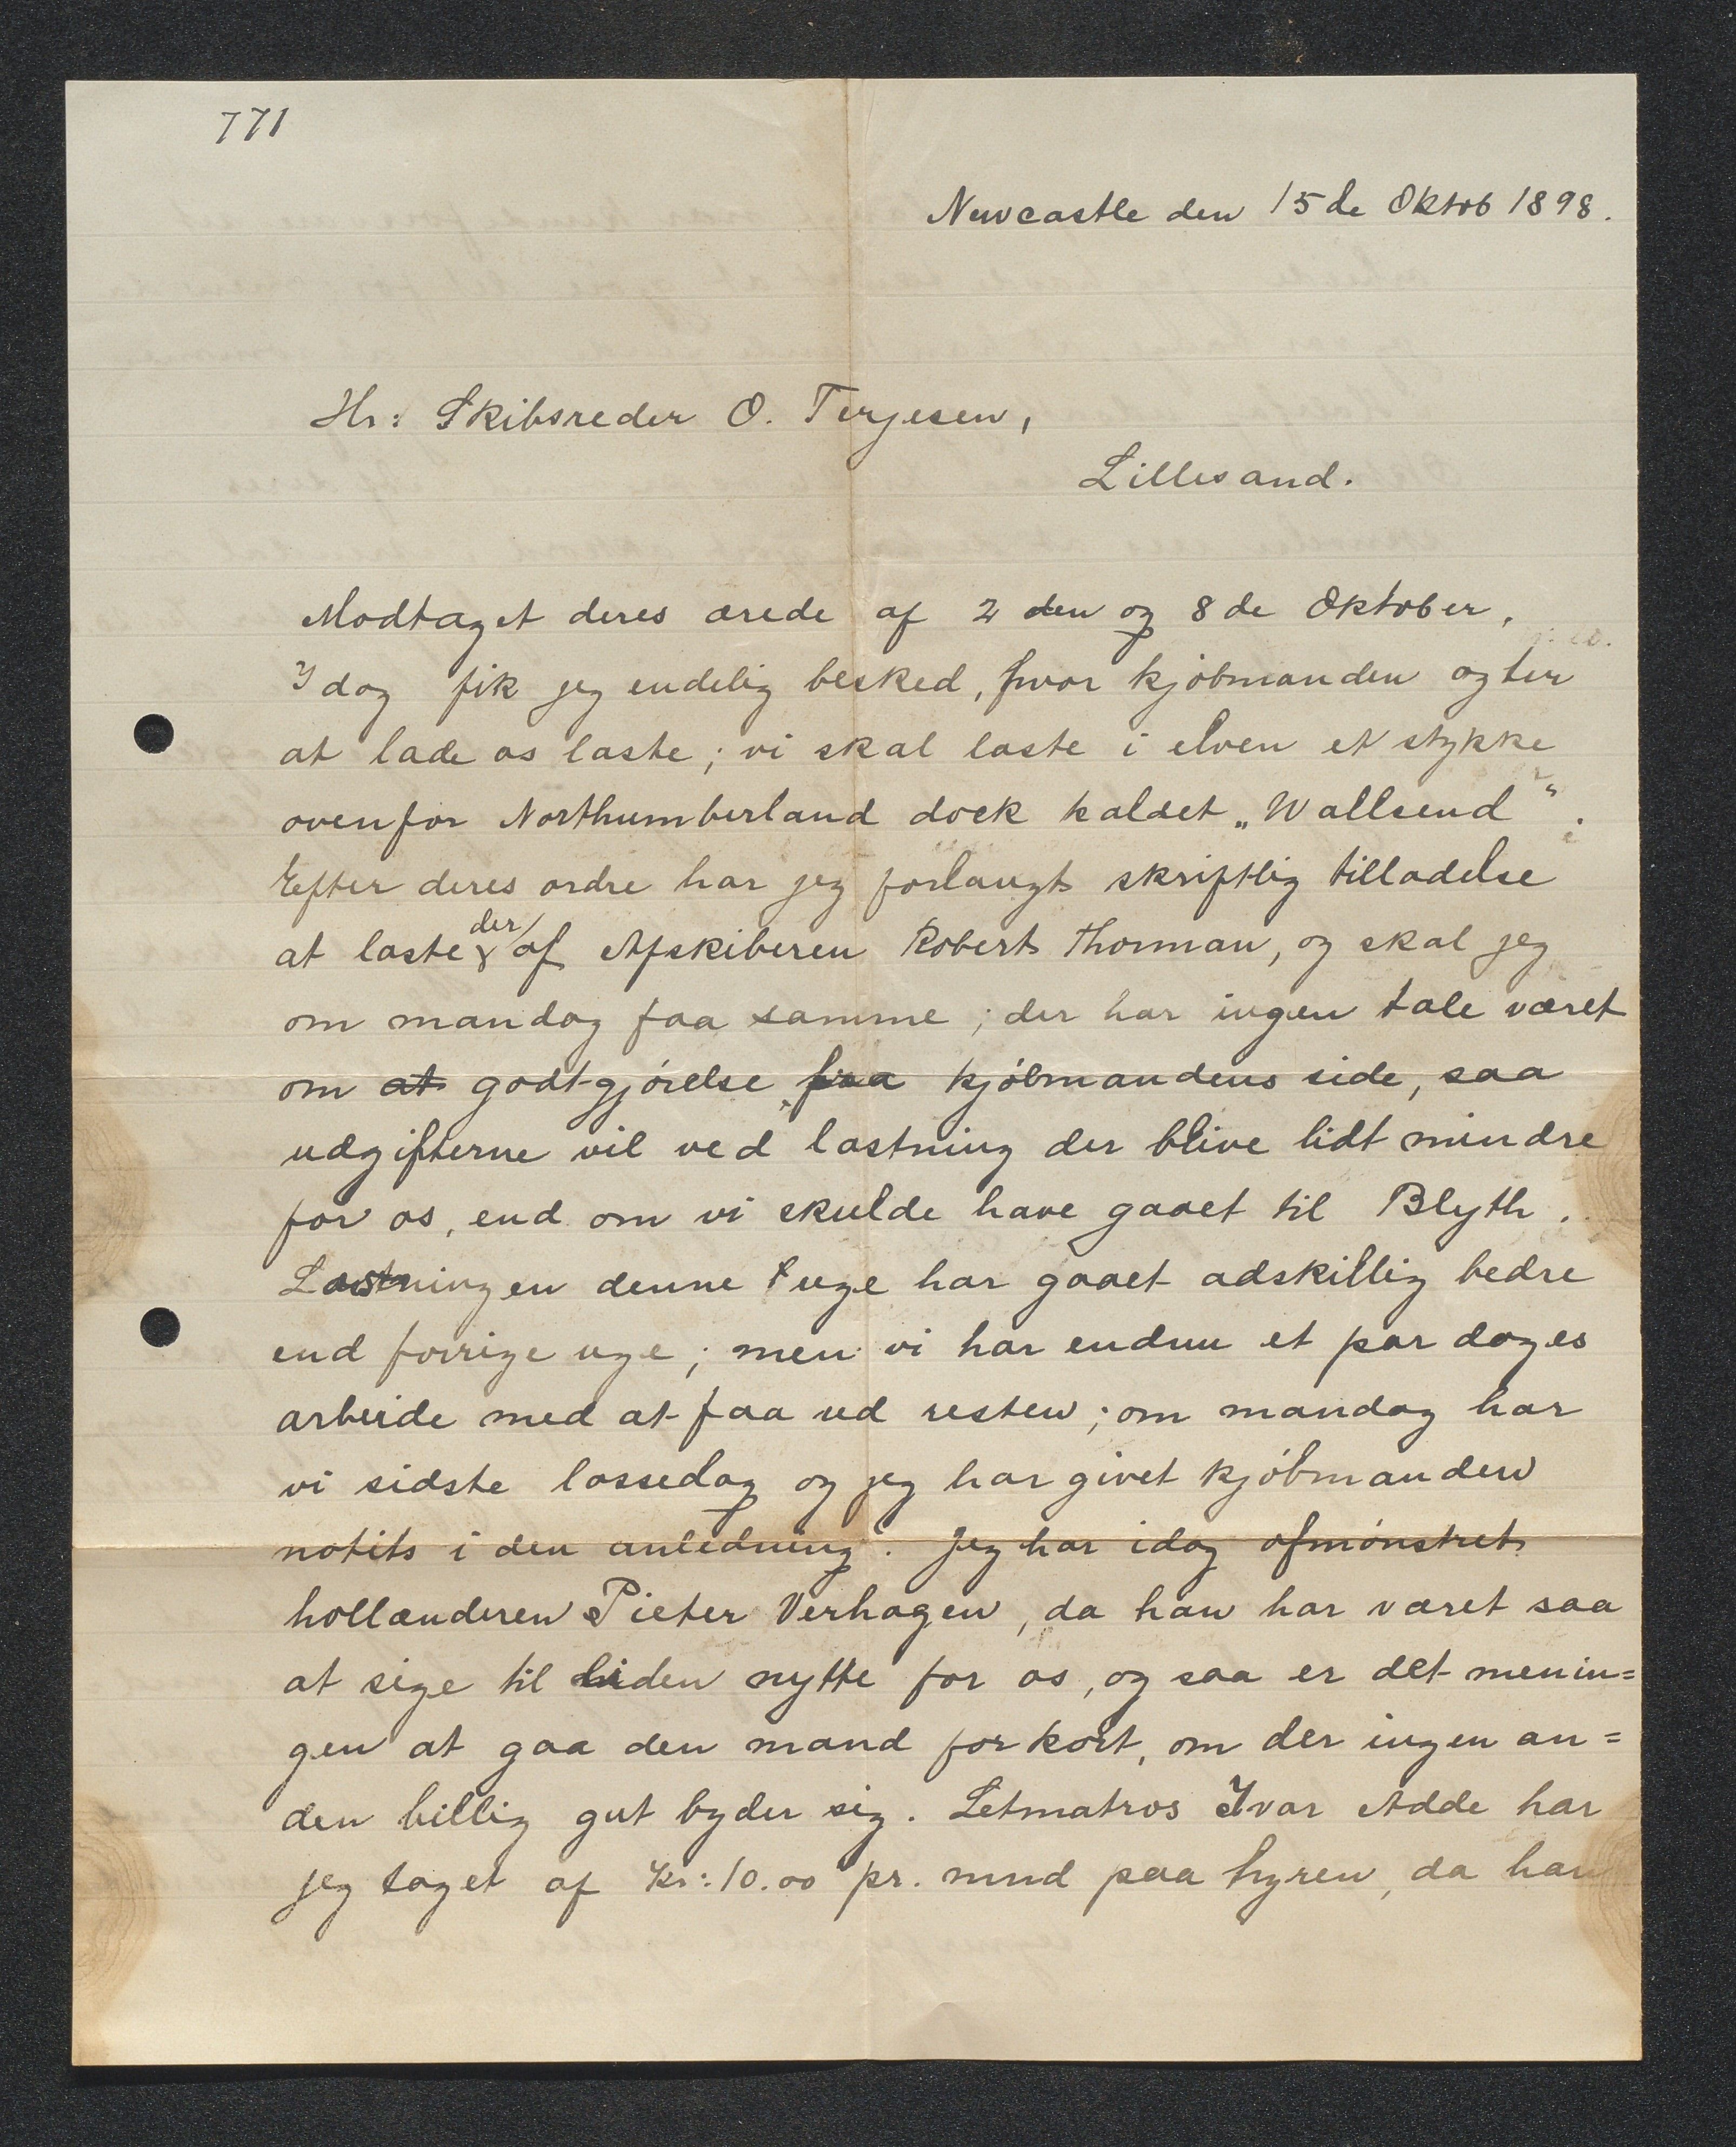 771
Newcastle den 15de Oktob 1898.
Hr: Skibsreder O. Terjesen,
Lillesand.
Modtaget deres ærede af 2den og 8de Oktober.
Idag fik jeg endelig besked, hvor kjøbmanden agter
at lade os laste; vi skal laste i elven et stykke
ovenfor Northumberland dock kaldet „Wallsend“.
Efter deres ordre har jeg forlangt skriftlig tilladelse
at laste der af Afskiberen Robert Thorman, og skal jeg
om mandag faa samme; der har ingen tale været
om at godtgjørelse fraa kjøbmandens side, saa
udgifterne vil ved lastning der blive lidt mindre
for os, end om vi skulde have gaaet til Blyth.
Lastningen denne uge har gaaet adskillig bedre
end forrige uge; men vi har endnu et par dages
arbeide med at faa ud resten; om mandag har
vi sidste lossedag og jeg har givet kjøbmanden
notits i den anledning. Jeg har idag afmønstret
hollænderen Pieter Verhagen, da han har været saa
at sige til liden nytte for os, og saa er det menin=
gen at gaa den mand for kort, om der ingen an=
den billig gut byder sig. Letmatros Ivar Adde har
jeg taget af Kr: 10.00 pr. mnd paa hyren, da han